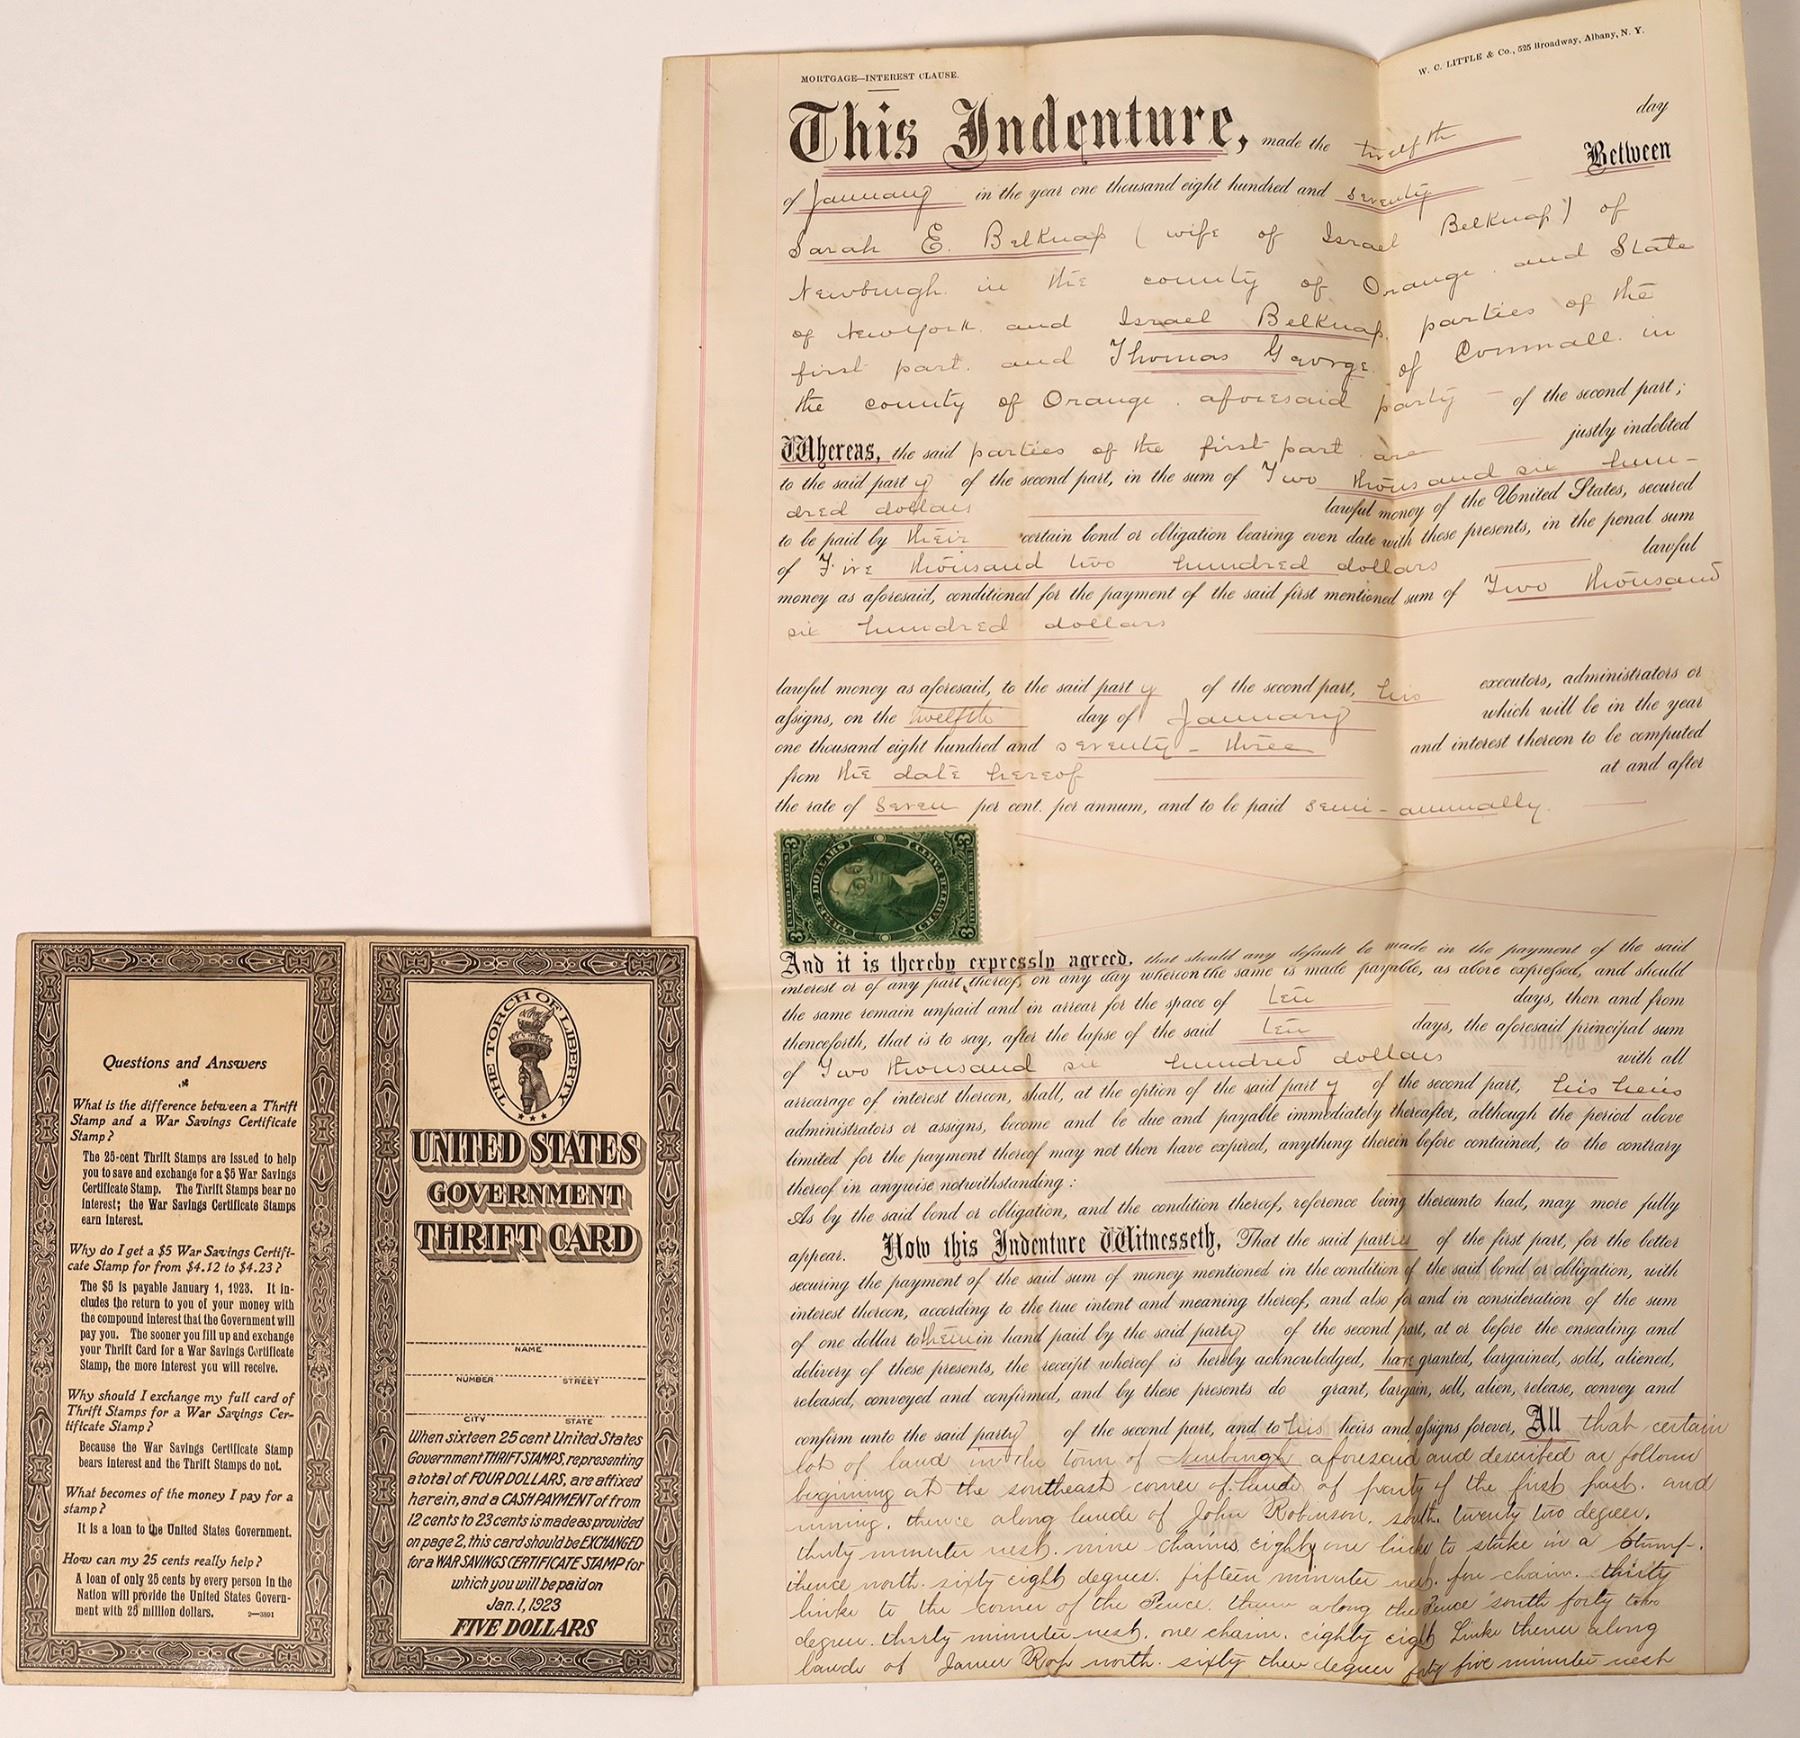 Questions and Answers
What is the difference between a Thrift
Stamp and a War Savings Certificate
Stamp?
The 25-cent Thrift Stamps are issued to help
you to save and exchange for a $5 War Savings
Certificate Stamp. The Thrift Stamps bear no
interest; the War Savings Certificate Stamps
earn interest.
Why do I get a $5 War Savings Certifi-
cate Stamp for from $4.12 to $4.23?
The $5 is payable January 1, 1923. It in-
cludes the return to you of your money with
the compound interest that the Government will
pay you. The sooner you fill up and exchange
your Thrift Card for a War Savings Certificate
Stamp, the more interest you will receive.
Why should I exchange my full card of
Thrift Stamps for a War Savings Cer-
tificate Stamp?
Because the War Savings Certificate Stamp
bears interest and the Thrift Stamps do not.
What becomes of the money I pay for a
stamp?
It is a loan to the United States Government.
How can my 25 cents really help?
A loan of only 25 cents by every person in the
Nation will provide the United States Govern-
ment with 25 million dollars. 2—3891
THE TORCH OF LIBERTY
UNITED STATES
GOVERNMENT
THRIFT CARD
NAME
NUMBER STREET
CITY STATE
When sixteen 25 cent United States
Government THRIFT STAMPS, representing
a total of FOUR DOLLARS, are affixed
herein, and a CASH PAYMENT of from
12 cents to 23 cents is made as provided
on page 2, this card should be EXCHANGED
for a WAR SAVINGS CERTIFICATE STAMP for
which you will be paid on
Jan. 1, 1923
FIVE DOLLARS
MORTGAGE—INTEREST CLAUSE.
W. C. LITTLE & Co., 525 Broadway, Albany, N. Y.
This Indenture, made the twelfth day
of January in the year one thousand eight hundred and seventy Between
Sarah E. Belknap (wife of Israel Belknap) of
Newburgh in the county of Orange and State
of New York and Israel Belknap parties of the
first part and Thomas George of Cornwall in
the county of Orange aforesaid party of the second part;
Whereas, the said parties of the first part are justly indebted
to the said party of the second part, in the sum of Two thousand six hun-
dred dollars lawful money of the United States, secured
to be paid by their certain bond or obligation bearing even date with these presents, in the penal sum
of Five thousand two hundred dollars lawful
money as aforesaid, conditioned for the payment of the said first mentioned sum of Two thousand
six hundred dollars
lawful money as aforesaid, to the said party of the second part, his executors, administrators or
assigns, on the twelfth day of January which will be in the year
one thousand eight hundred and seventy-three and interest thereon to be computed
from the date hereof at and after
the rate of seven per cent. per annum, and to be paid semi-annually.
3 UNITED STATES 3
THREE DOLLARS
CHARTER PARTY
3 INTER. REV. 3
And it is hereby expressly agreed, that should any default be made in the payment of the said
interest or of any part thereof, on any day whereon the same is made payable, as above expressed, and should
the same remain unpaid and in arrear for the space of ten days, then and from
thenceforth, that is to say, after the lapse of the said ten days, the aforesaid principal sum
of Two thousand six hundred dollars with all
arrearage of interest thereon, shall, at the option of the said party of the second part, his heirs
administrators or assigns, become and be due and payable immediately thereafter, although the period above
limited for the payment thereof may not then have expired, anything therein before contained, to the contrary
thereof in anywise notwithstanding:
As by the said bond or obligation, and the condition thereof, reference being thereunto had, may more fully
appear. Now this Indenture Witnesseth, That the said parties of the first part, for the better
securing the payment of the said sum of money mentioned in the condition of the said bond or obligation, with
interest thereon, according to the true intent and meaning thereof, and also for and in consideration of the sum
of one dollar to them in hand paid by the said party of the second part, at or before the ensealing and
delivery of these presents, the receipt whereof is hereby acknowledged, have granted, bargained, sold, aliened,
released, conveyed and confirmed, and by these presents do grant, bargain, sell, alien, release, convey and
confirm unto the said party of the second part, and to his heirs and assigns forever, All that certain
lot of land in the town of Newburgh aforesaid and described as follows
beginning at the southeast corner of lands of party of the first part. and
running. thence along lands of John Robinson. south. twenty two degrees.
thirty minutes west. nine chains eighty one links to stake in a stump.
thence north. sixty eight degrees. fifteen minutes west. four chains. thirty
links to the corner of the fence. thence along the fence south forty two
degrees. thirty minutes west. one chain. eighty eight links thence along
lands of James Ross north. sixty three degrees forty five minutes west